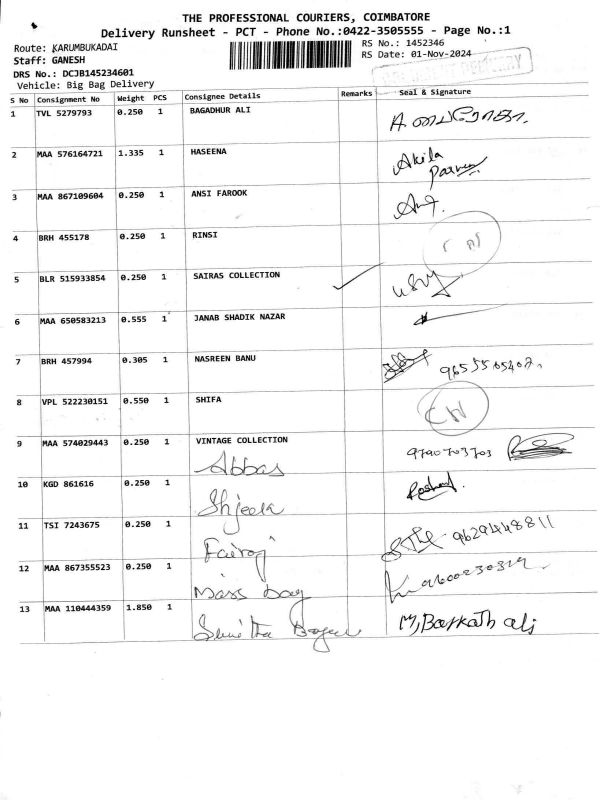 THE PROFESSIONAL COURIERS, COIMBATORE
Delivery Runsheet - PCT - Phone No.:0422-3505555 - Page No.:1
Route: KARUMBUKADAI
RS No.: 1452346
Staff: GANESH
RS Date: 01-Nov-2024
DRS No.: DCJB145234601
Vehicle: Big Bag Delivery
S No Consignment No Weight PCS Consignee Details Remarks Seal & Signature
1 TVL 5279793 0.250 1 BAGADHUR ALI
2 MAA 576164721 1.335 1 HASEENA Akila
3 MAA 867109604 0.250 1 ANSI FAROOK
4 BRH 455178 0.250 1 RINSI
5 BLR 515933854 0.250 1 SAIRAS COLLECTION
6 MAA 650583213 0.555 1 JANAB SHADIK NAZAR
7 BRH 457994 0.305 1 NASREEN BANU
8 VPL 522230151 0.550 1 SHIFA CN
9 MAA 574029443 0.250 1 VINTAGE COLLECTION 9790703703
Abbas
10 KGD 861616 0.250 1
11 TSI 7243675 0.250 1 9629448811
Fairoj
12 MAA 867355523 0.250 1
Miss bag
13 MAA 110444359 1.850 1 M, Barkath ali